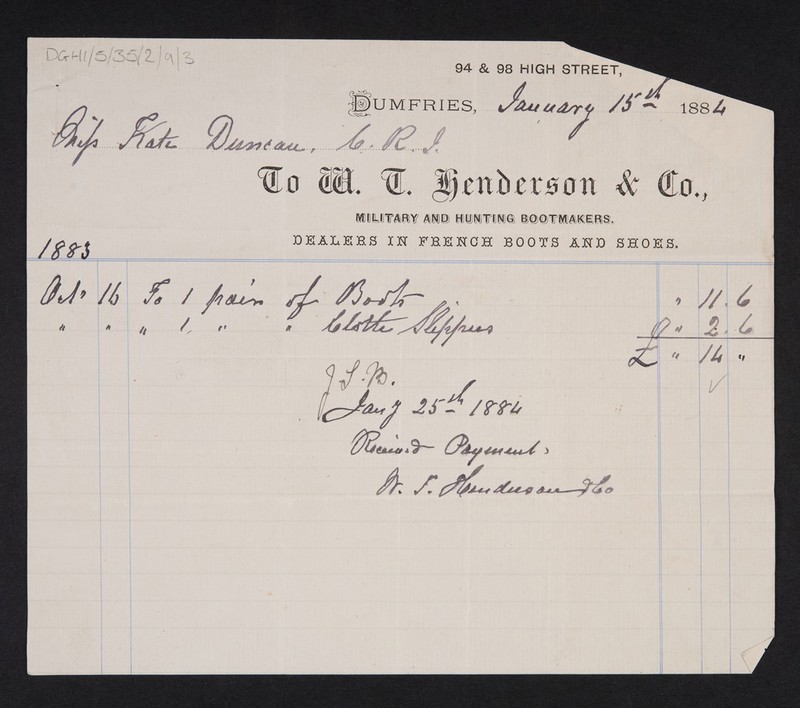 DGH1/5/35/2/9/3
94 & 98 HIGH STREET,
DUMFRIES, January 15th 1884
Miss Kate Duncan, C. R. I.
To W. T. Henderson & Co.,
MILITARY AND HUNTING BOOTMAKERS.
DEALERS IN FRENCH BOOTS AND SHOES.
1883
Octr 16 To 1 pair of Boots " 11. 6
" " " 1 " " Cloth Slippers " 2. 6
£ " 14 "
J. S. B.
Jany 25th 1884
Received Payment.
W. T. Henderson & Co